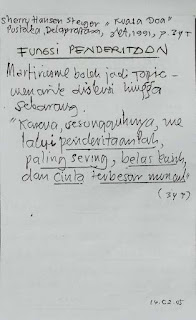 Sherry Hansen Steiger, "Kuasa Doa"
Pustaka Delapratasa, 1991, p. 347
FUNGSI PENDERITAAN
Martirisme boleh jadi topic
diskusi hingga
sekarang.
"Karena, sesungguhnya, me
lalui penderitaanlah,
paling sering, belas kasih,
dan cinta terbesar muncul"
(347)
14.02.05